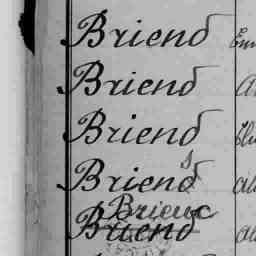 Briend
Briend
Briend
Briend
Brieuc
Briend